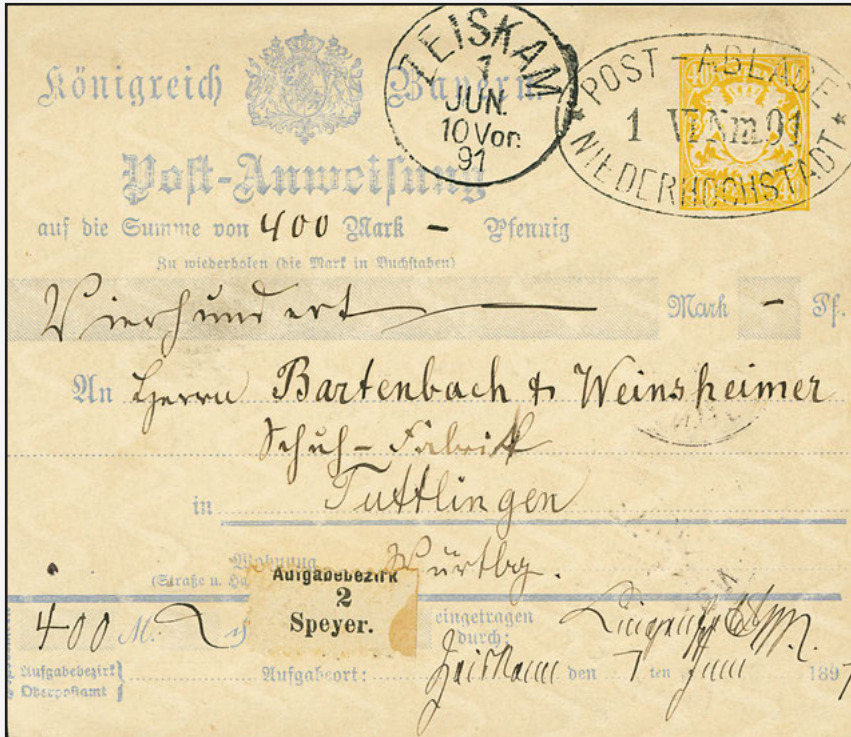 Königreich Bayern
ZEISKAM
1
JUN.
10 Vor.
91
POST-ABLAGE
1 VI Nm. 91
* NIEDERHOCHSTADT *
Post-Anweisung
auf die Summe von 400 Mark - Pfennig
Zu wiederholen (die Mark in Buchstaben)
Vierhundert Mark - Pf.
An Herrn Bartenbach & Weinsheimer
Schuh-Fabrik
in Tuttlingen
Wohnung Würtbg.
(Straße u.
Aufgabebezirk
2
Speyer.
400 M. eingetragen
durch:
Aufgabebezirk
Oberpostamt
Aufgabeort: Zeiskam den 1 ten Juni 1891